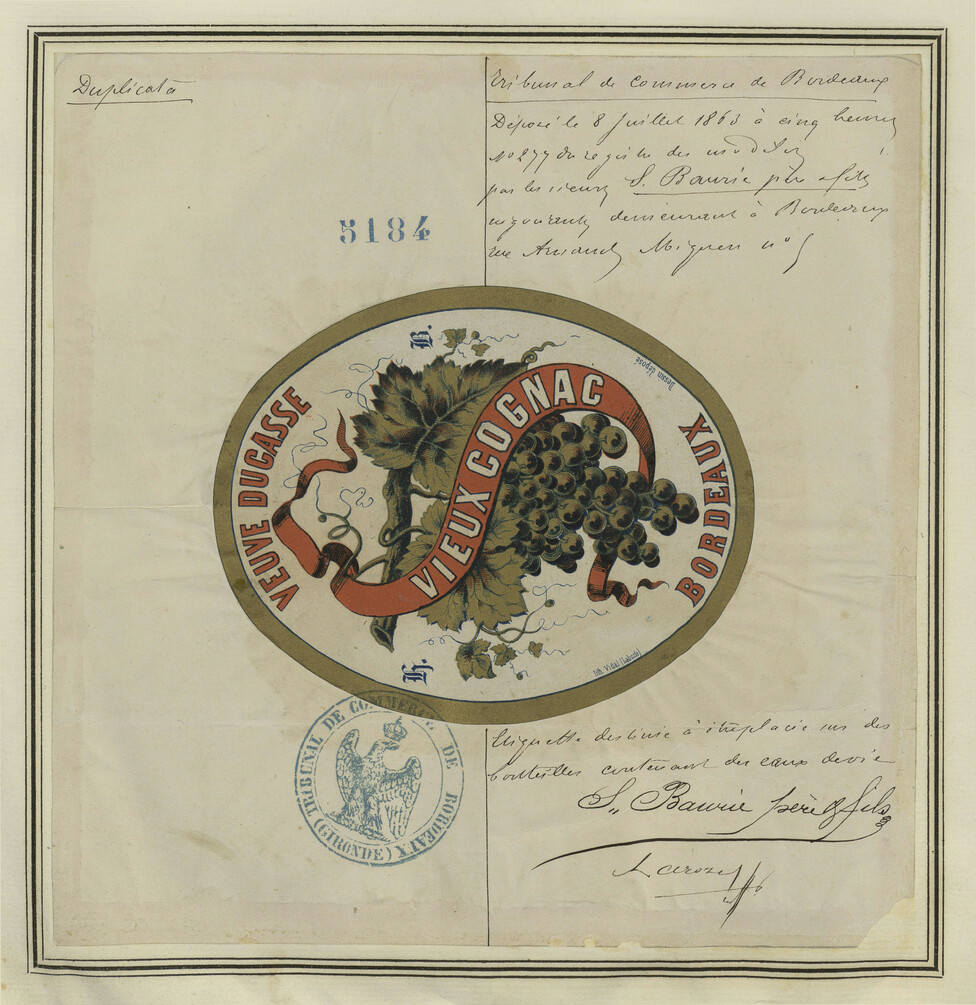 Duplicata
Tribunal de Commerce de Bordeaux
Déposé le 8 Juillet 1863 à cinq heures
N° 277 du registre des modèles
par les sieurs S. Baurie père & fils
négociants, demeurant à Bordeaux
rue Arnaud Miqueu n° 5
5184
B.
Dessin déposé
VEUVE DUCASSE
VIEUX COGNAC
BORDEAUX
H.
Lith. Vidal (Labarde)
TRIBUNAL DE COMMERCE DE BORDEAUX (GIRONDE)
Etiquette destinée à être placée sur des
bouteilles contenant des eaux de vie
S. Baurie père & fils